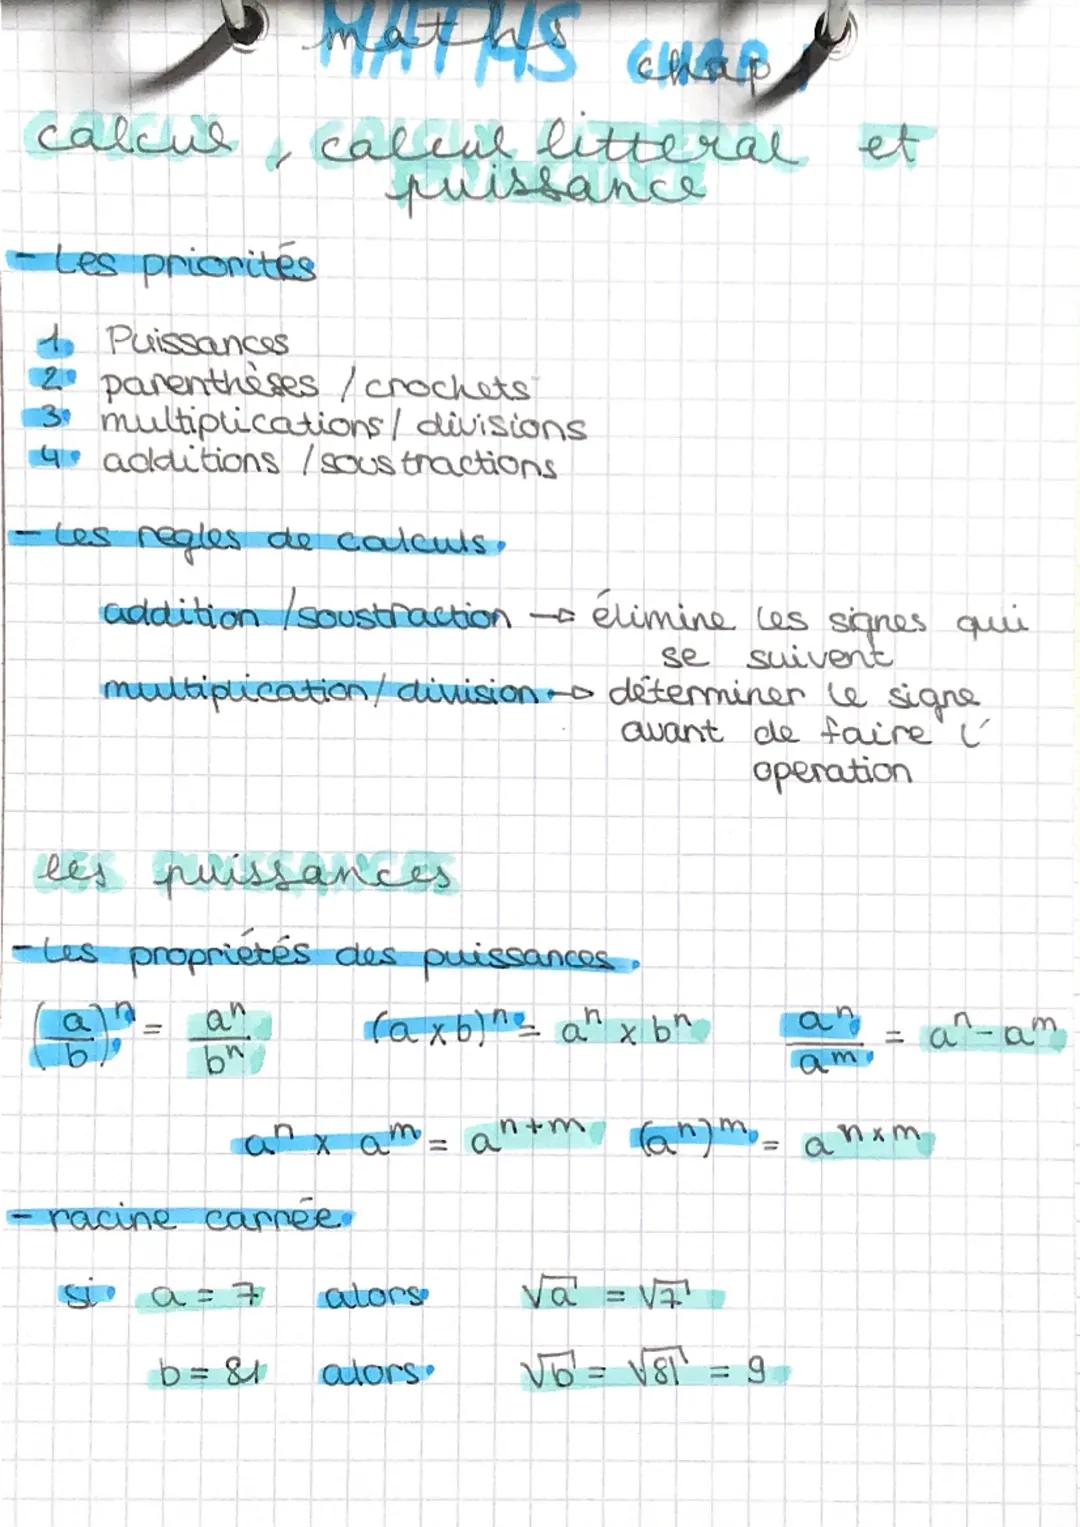 maths
MATHS chap 1
calcul, calcul litteral et
puissance
- Les priorités
1. Puissances
2. parenthèses / crochets
3. multiplications / divisions
4. additions / soustractions
- Les regles de calculs.
addition / soustraction → élimine les signes qui
se suivent
multiplication / division → déterminer le signe
avant de faire l'
operation
les puissances
- Les propriétés des puissances.
(a/b)ⁿ = aⁿ/bⁿ (a x b)ⁿ = aⁿ x bⁿ aⁿ/aᵐ = aⁿ - aᵐ
aⁿ x aᵐ = aⁿ⁺ᵐ (aⁿ)ᵐ = aⁿˣᵐ
- racine carrée
si a = 7 alors √a = √7
b = 81 alors √b = √81 = 9